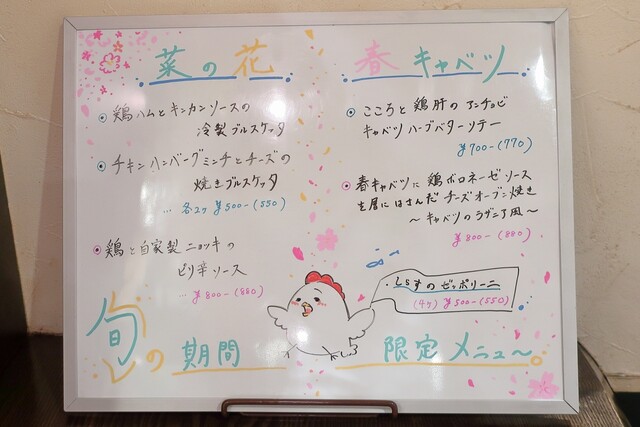 菜の花
・鶏ハムとキンカンソースの
冷製ブルスケッタ
・チキンハンバーグミンチとチーズの
焼きブルスケッタ
… 各2ヶ ¥500-(550)
・鶏と自家製ニョッキの
ピリ辛ソース
… ¥800-(880)
春キャベツ
・こころと鶏肝のアンチョビ
キャベツハーブバターソテー
¥700-(770)
・春キャベツに鶏ボロネーゼソース
を層にはさんだチーズオーブン焼き
～キャベツのラザニア風～
¥800-(880)
・しらすのゼッポリーニ
(4ヶ) ¥500-(550)
旬の期間 限定メニュ～。